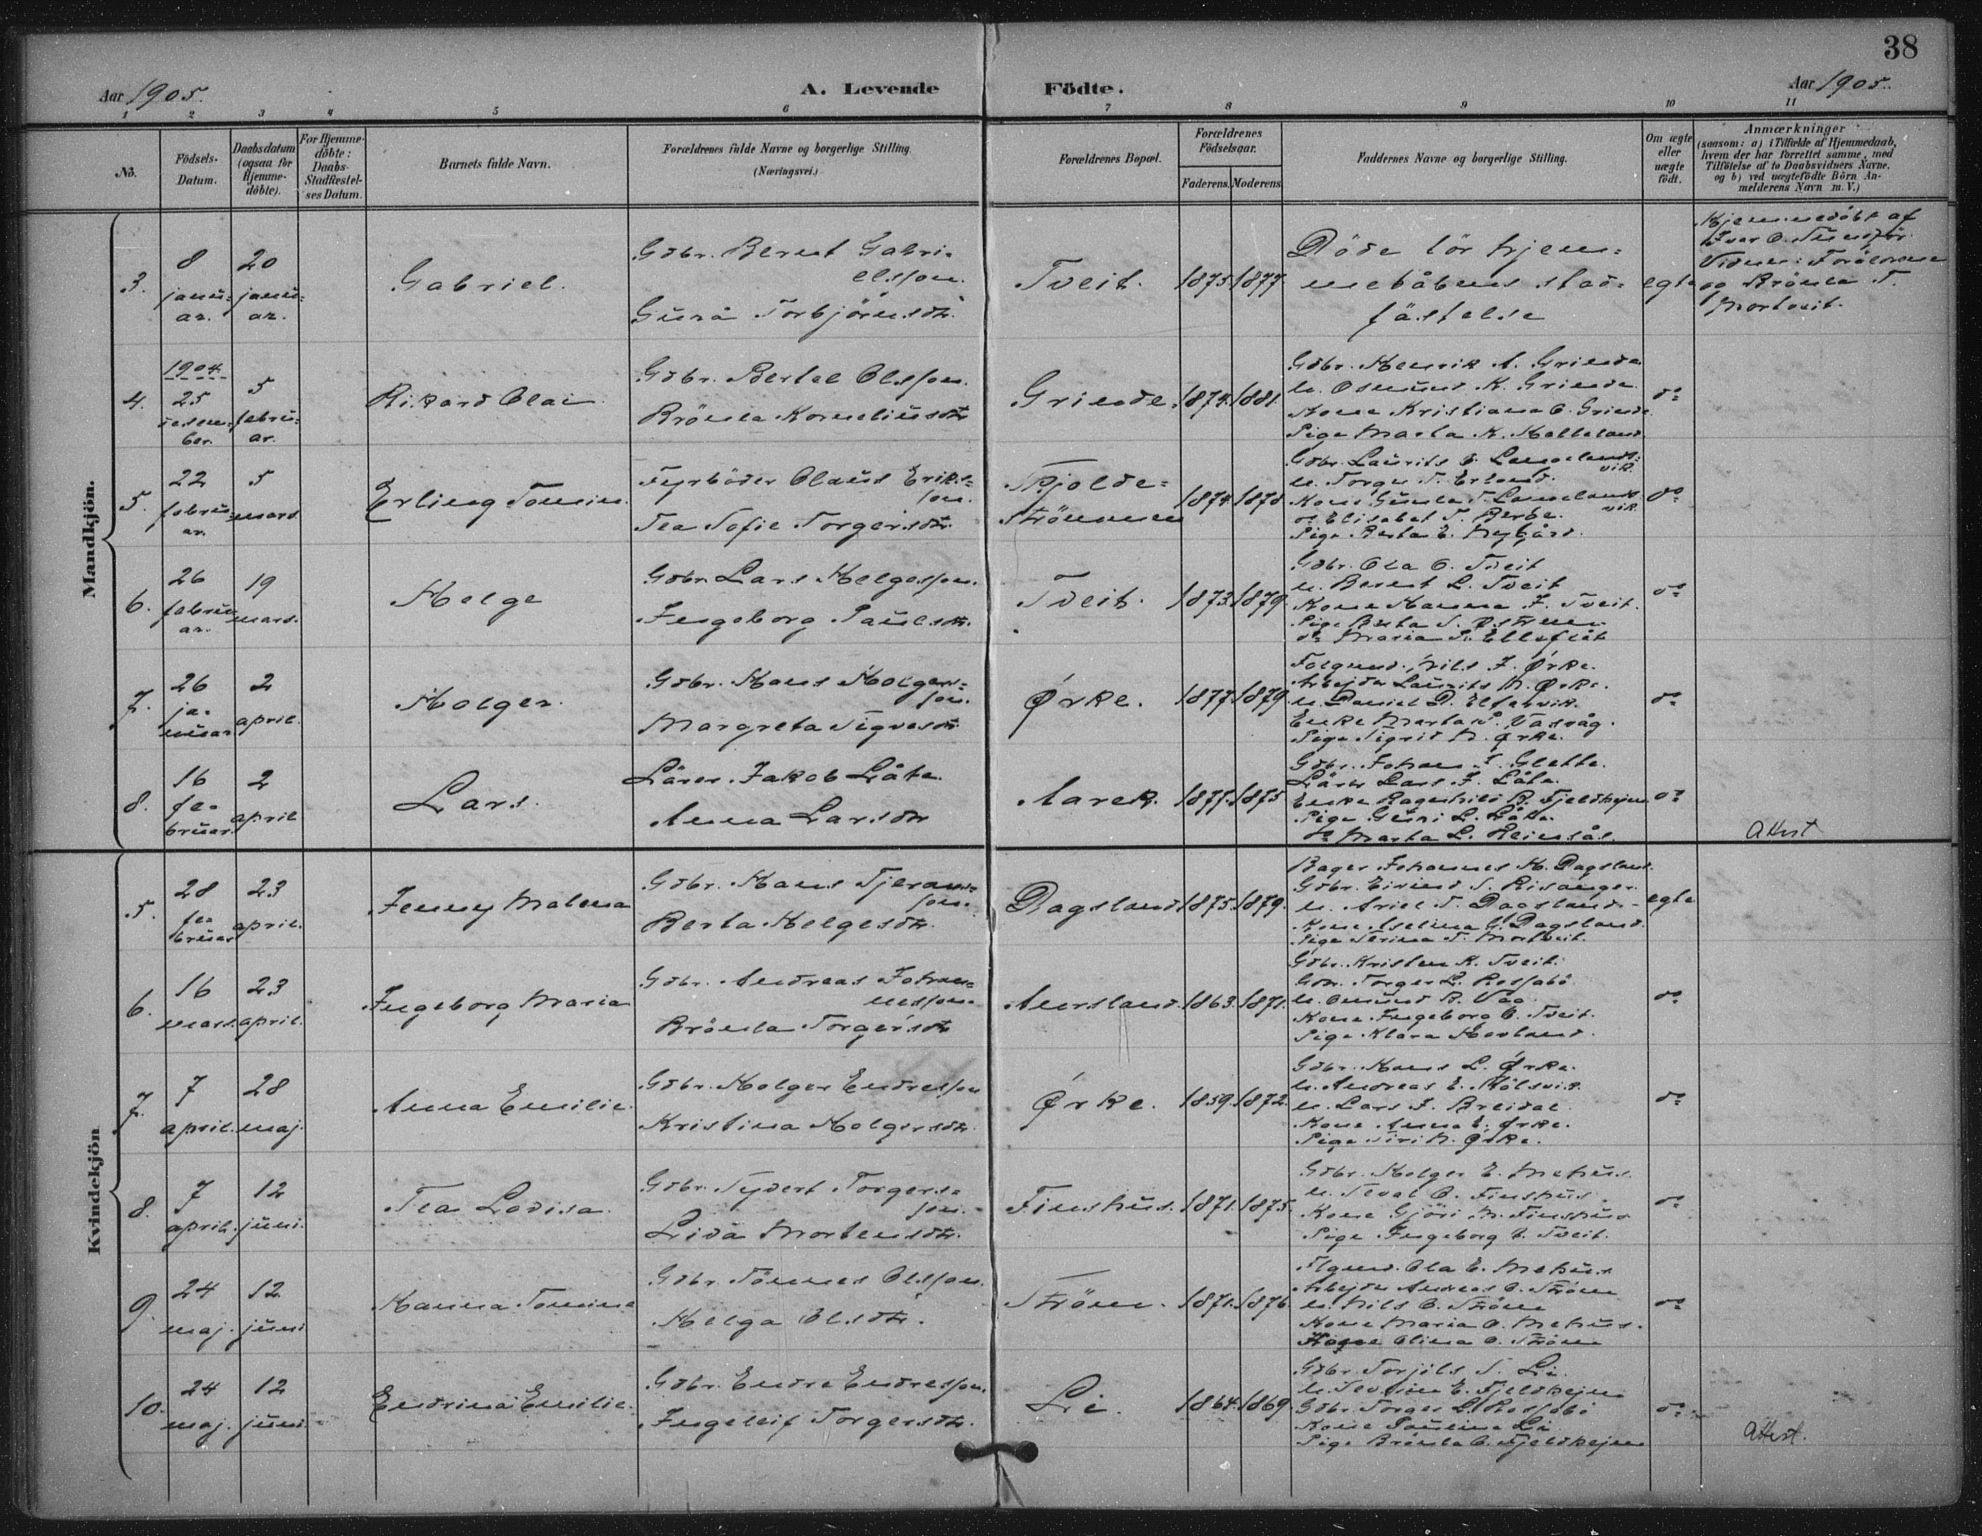 38
Aar 1905.
A. Levende
Födte.
Aar 1905.
1 2 3 4 5 6 7 8 9 10 11
No.
Födsels-
Datum.
Daabsdatum
(ogsaa for
Hjemme-
döbte).
For Hjemme-
döbte:
Daabs-
Stadfæstel-
ses Datum.
Barnets fulde Navn.
Forældrenes fulde Navne og borgerlige Stilling
(Næringsvei.)
Forældrenes Bopæl.
Forældrenes
Födselsaar.
Faderens.
Moderens.
Faddernes Navne og borgerlige Stilling.
Om ægte
eller
uægte
födt.
Anmærkninger
(saasom: a) i Tilfælde af Hjemmedaab,
hvem der har forrettet samme, med
Tilföielse af to Daabsvidners Navne,
og b) ved uægtefödte Börn An-
melderens Navn m. V.)
Mandkjön.
3.
8
janu-
ar.
20
janu-
ar.
Gabriel.
Gdbr. Berent Gabri-
elsson.
Guro Torbjörnsdtr.
Tveit.
1875.
1877.
Döde för hjem-
medåbens stad-
fästelse
egte
Hjemmedöbt af
Vidner: Forældrene
og Brönla T.
Mortveit.
4.
1904
25
desem-
ber.
5
febru-
ar.
Rikard Olai
Gdbr. Bertel Olsson.
Brönla Korneliusdtr.
Grinde.
1874.
1881.
Gdbr. Henrik A. Grinde
u. Osmund K. Grinde
Kone Kristiana O. Grinde
Pige Marta K. Helleland.
do
5.
22
febru-
ar.
5
mars
Erling Tomin.
Fyrböder Olaus Eriks-
son.
Tea Sofie Torgersdtr.
Skjolde-
strömmen
1874.
1878
Gdbr. Laurits E. Langelands-
vik.
u. Torger T. Erland.
Kone Gunla T. Langelands-
vik.
og Elisabet T. Berbe.
Pige Berta E. Nygård.
do
6.
26
febru-
ar.
19
mars.
Helge
Gdbr. Lars Helgesson.
Ingeborg Paulsdtr.
Tveit.
1873.
1879.
Gdbr. Ola O. Tveit
u. Berent L. Tveit
Kone Hanna J. Tveit.
do Maria
do
7.
26
ja-
nuar
2
april.
Holger.
Gdbr. Hans Holgers-
son.
Margreta Sigvesdtr.
Ørke.
1877.
1879.
Folgmd. Nils J. Ørke.
Arbejder Laurits M. Ørke.
u. Daniel D. Elfarvik.
Enke Marta P. Vasvåg.
Pige Sigrid N. Ørke.
do
8.
16
fe-
bruar
2
april
Lars.
Lärer Jakob Låte.
Anna Larsdtr
Aarek.
1877.
1875
Gdbr. Johan J. Slette.
Lärer Lars J. Låte.
Enke Ragnhild B. Fjeldhejm
Pige Guri L. Låte.
do Marta L. Reinsås.
do
Attest
Kvindekjön
5.
28
fe-
bruar
23
april.
Jenny Malena
Gdbr. Hans Tjerans-
son.
Berta Helgesdtr.
Dagsland
1875.
1879.
Bager Johannes H. Dagsland.
Gdbr. Eivind S. Risanger.
u. Ariel T. Dagsland.
Kone Aselina G. Dagsland.
Pige Serina T. Mortveit.
egte
6.
16
mars.
23
april.
Ingeborg Maria
Gdbr. Andreas Johan-
nesson.
Brönla Torgersdtr
Amsland.
1863.
1871.
Gdbr. Kristen K. Tveit.
Gdbr. Torger L. Rossabö
u. Omund B. Våg
Kone Ingeborg O. Tveit.
Pige Klara Hovland.
do
7.
7
april.
28
maj.
Anna Emilie.
Gdbr. Holger Endresson
Kristina Holgersdtr.
Ørke.
1859.
1872.
Gdbr. Hans L. Ørke.
u. Andreas E. Mölsvik.
u. Lars J. Breidal.
Kone Anna E. Ørke.
Pige Siri N. Ørke.
do
8.
7
april.
12
juni.
Tea Lovisa.
Gdbr. Sydert Torgers-
son.
Lida Mortensdtr.
Finshus.
1871.
1875.
Gdbr. Holger E. Mehus.
u. Seval O. Finshus.
Kone Gjöri M. Finshus
Pige Ingeborg L. Tveit.
do
9.
24
maj.
12
juni
Hanna Tomina
Gdbr. Tönnes Olsson.
Helga Olsdtr.
Ström.
1871.
1876.
Flgmd. Ola E. Mehus
Arbejder Andreas O. Ström
u. Nils O. Ström
Kone Maria O. Mehus.
Kone Olina O. Ström
do
10.
24
maj.
12
juni
Endrina Emilie.
Gdbr. Endre Endresson.
Ingeleif Torgersdtr.
Li.
1864.
1869.
Gdbr. Torjils T. Li.
Gdbr. Torger L. Rossabö
Kone Paulina Li
Pige Brönla O. Fjeldhejm
do
Attest.